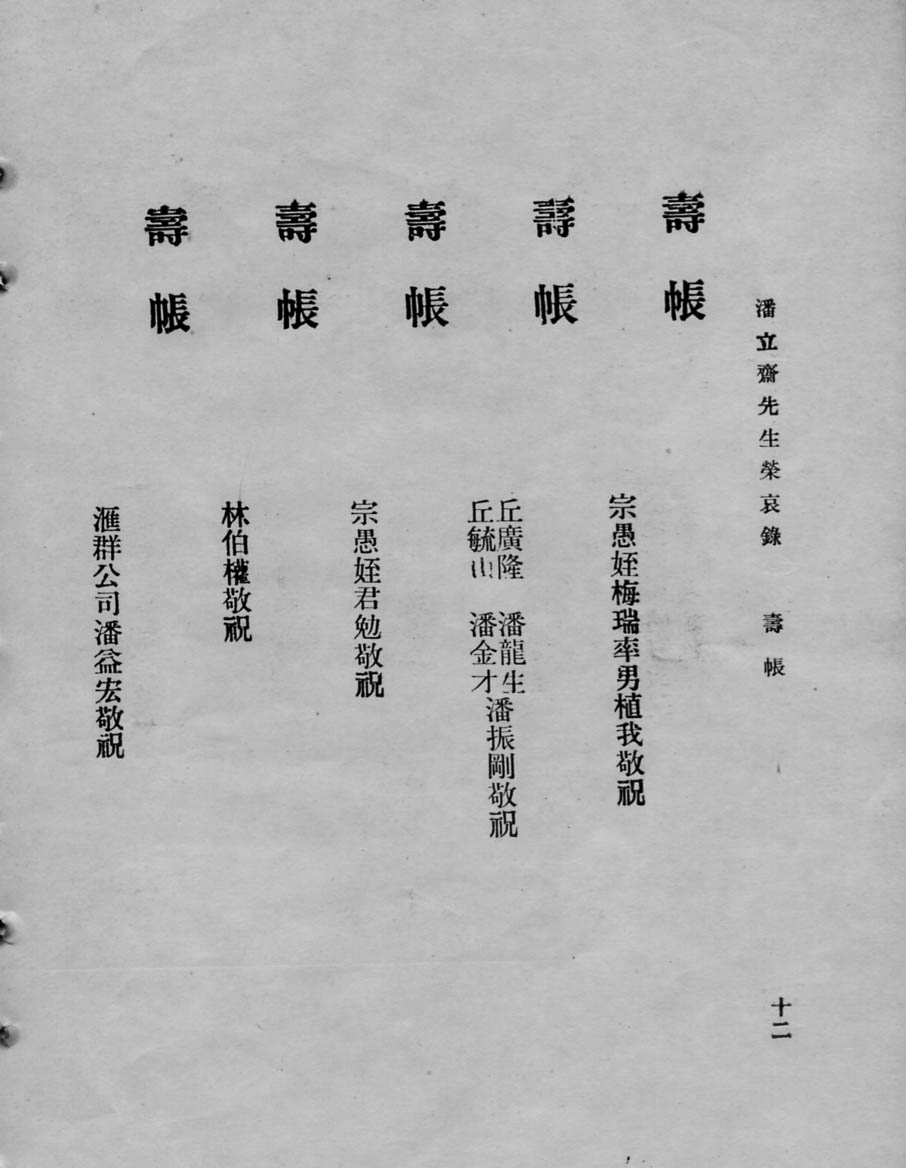 潘立齋先生榮哀錄　壽帳
十二
壽帳
宗愚姪梅瑞率男植我敬祝
壽帳
丘廣隆　潘龍生
丘毓山　潘金才
潘振剛敬祝
壽帳
宗愚姪君勉敬祝
壽帳
林伯權敬祝
壽帳
滙群公司潘益宏敬祝